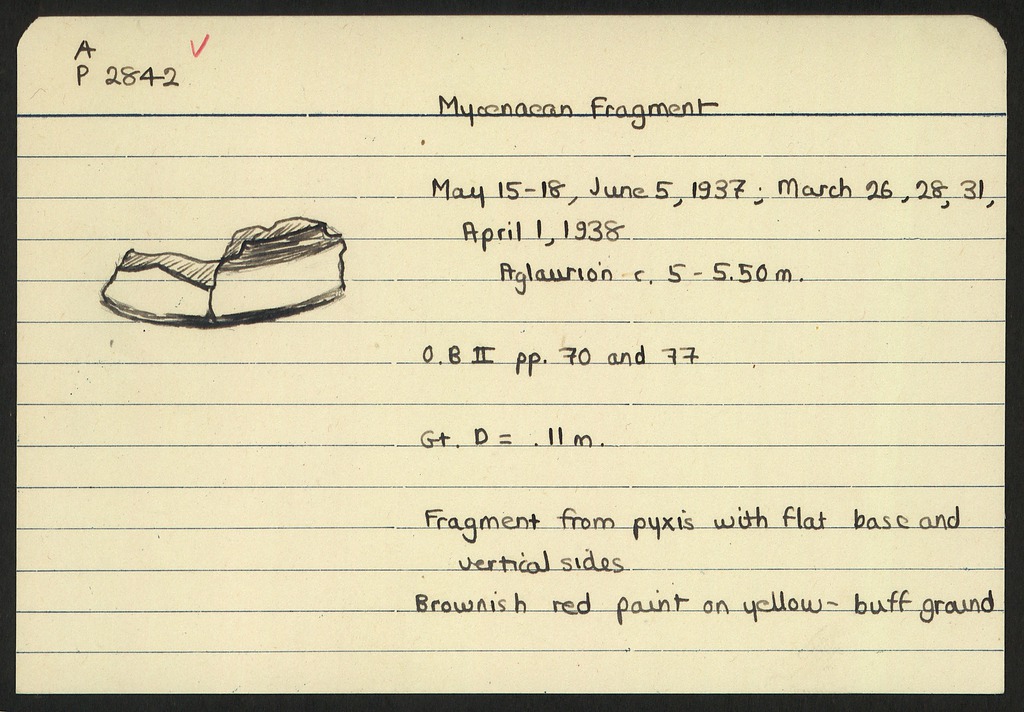 A
P 2842
Mycenaean Fragment
May 15-18, June 5, 1937; March 26, 28, 31,
April 1, 1938
Aglaurion c. 5 - 5.50 m.
O.B II pp. 70 and 77
Gt. D = .11 m.
Fragment from pyxis with flat base and
vertical sides
Brownish red paint on yellow- buff ground